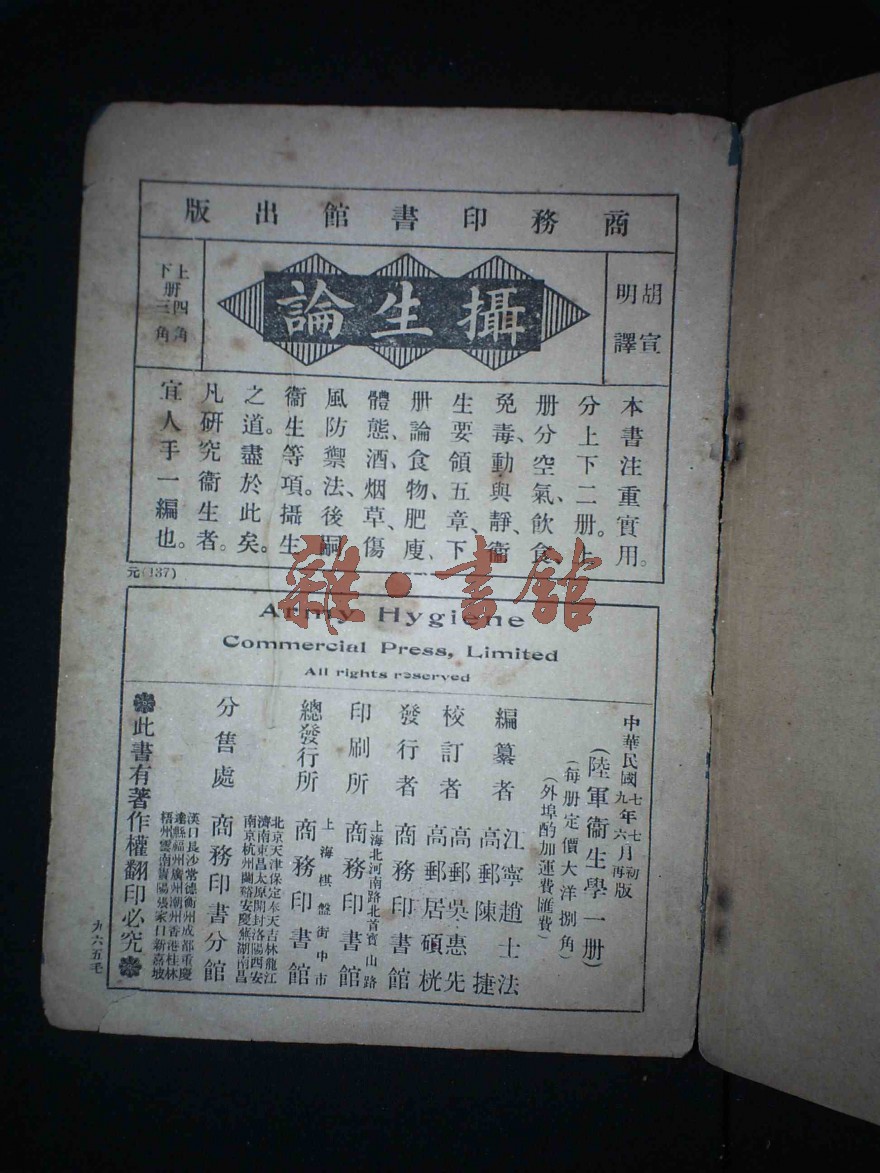 商務印書館出版
胡宣
明譯
攝生論
上册四角
下册三角
本書注重實用。
分上下二册。上
册分空氣、飲食、
免毒、動與靜、衞
生要領五章、下
册論食物、肥廋、
體態、酒、烟草、傷
風防禦法、後嗣
衞生等項。攝生
之道。盡於此矣。
凡研究衞生者。
宜人手一編也。
元(137)
雜·書館
Army Hygiene
Commercial Press, Limited
All rights reserved
中華民國
七年七月初版
九年六月再版
(陸軍衞生學一册)
(每册定價大洋捌角)
(外埠酌加運費匯費)
編纂者
江寧趙士法
高郵陳捷
校訂者
高郵吳惠先
高郵居碩桄
發行者
商務印書館
印刷所
上海北河南路北首寶山路
商務印書館
總發行所
上海棋盤街中市
商務印書館
分售處
北京天津保定奉天吉林龍江
濟南東昌太原開封洛陽西安
南京杭州蘭谿安慶蕪湖南昌
漢口長沙常德衡州成都重慶
達縣福州廣州潮州香港桂林
梧州雲南貴陽張家口新嘉坡
商務印書分館
此書有著作權翻印必究
九六五毛